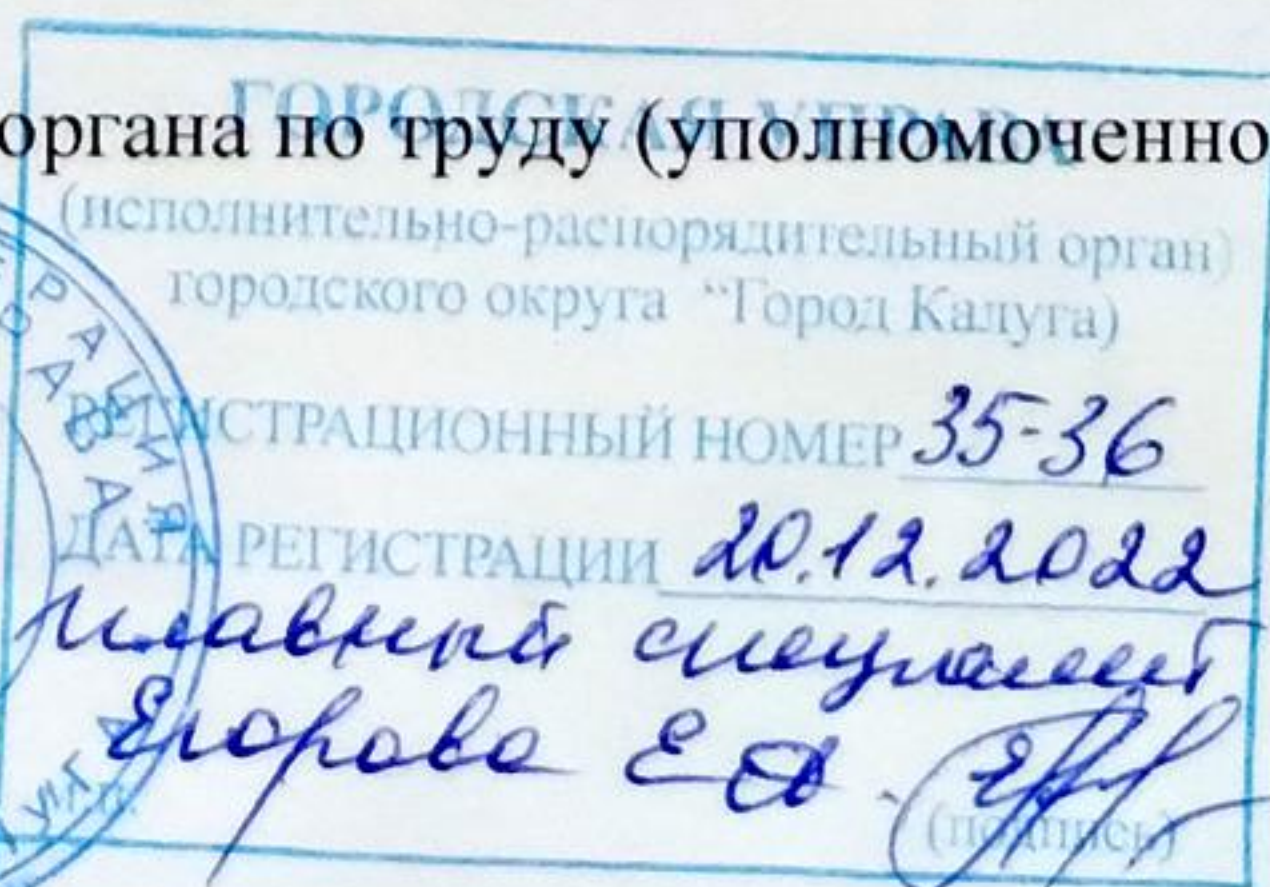 ГОРОДСКАЯ УПРАВА
органа по труду (уполномоченно
(исполнительно-распорядительный орган)
городского округа “Город Калуга)
РЕГИСТРАЦИОННЫЙ НОМЕР 35-36
ДАТА РЕГИСТРАЦИИ 20.12.2022
главный специалист
Егорова Е
(подпись)